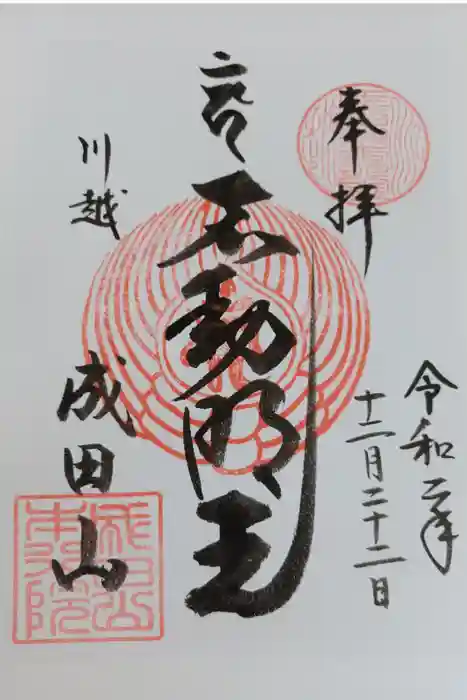 奉拝
令和二年
十二月二十二日
不動明王
川越
成田山
成田山
本行院